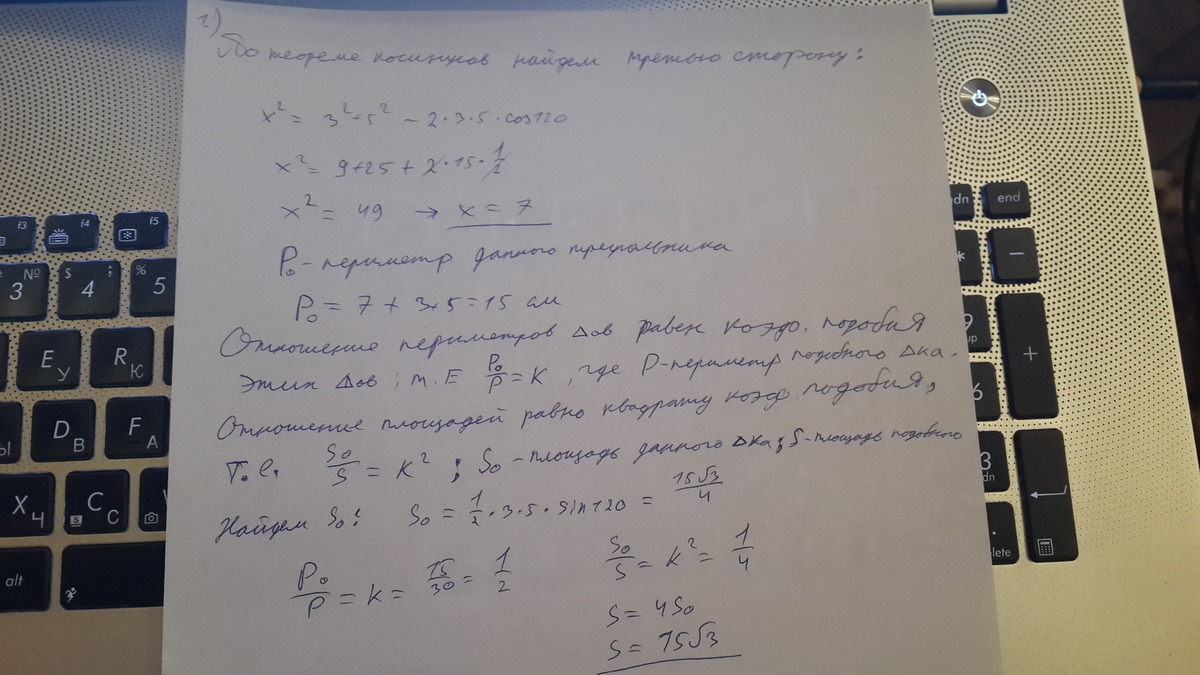 2)
По теореме косинусов найдем третью сторону:
x² = 3²+5² - 2·3·5·cos120
x² = 9+25 + 2·15·1/2
x² = 49 → x = 7
P₀ - периметр данного треугольника
P₀ = 7 + 3+5 = 15 см
Отношение периметров Δов равен коэф. подобия
этих Δов; т.Е P₀/P = K, где P-периметр подобного Δка.
Отношение площадей равно квадрату коэф. подобия,
Т.е. S₀/S = K²; S₀ - площадь данного Δка; S-площадь подобного
Найдем S₀: S₀ = 1/2·3·5·sin120 = 15√3/4
P₀/P = K = 15/30 = 1/2
S₀/S = K² = 1/4
S = 4S₀
S = 15√3
f3
f4
f5
3 №
$ ; 4
% 5
E У
R К
Ы
D В
F А
X Ч
C С
alt
dn
end
*
-
9
up
+
6
3
dn
.
elete